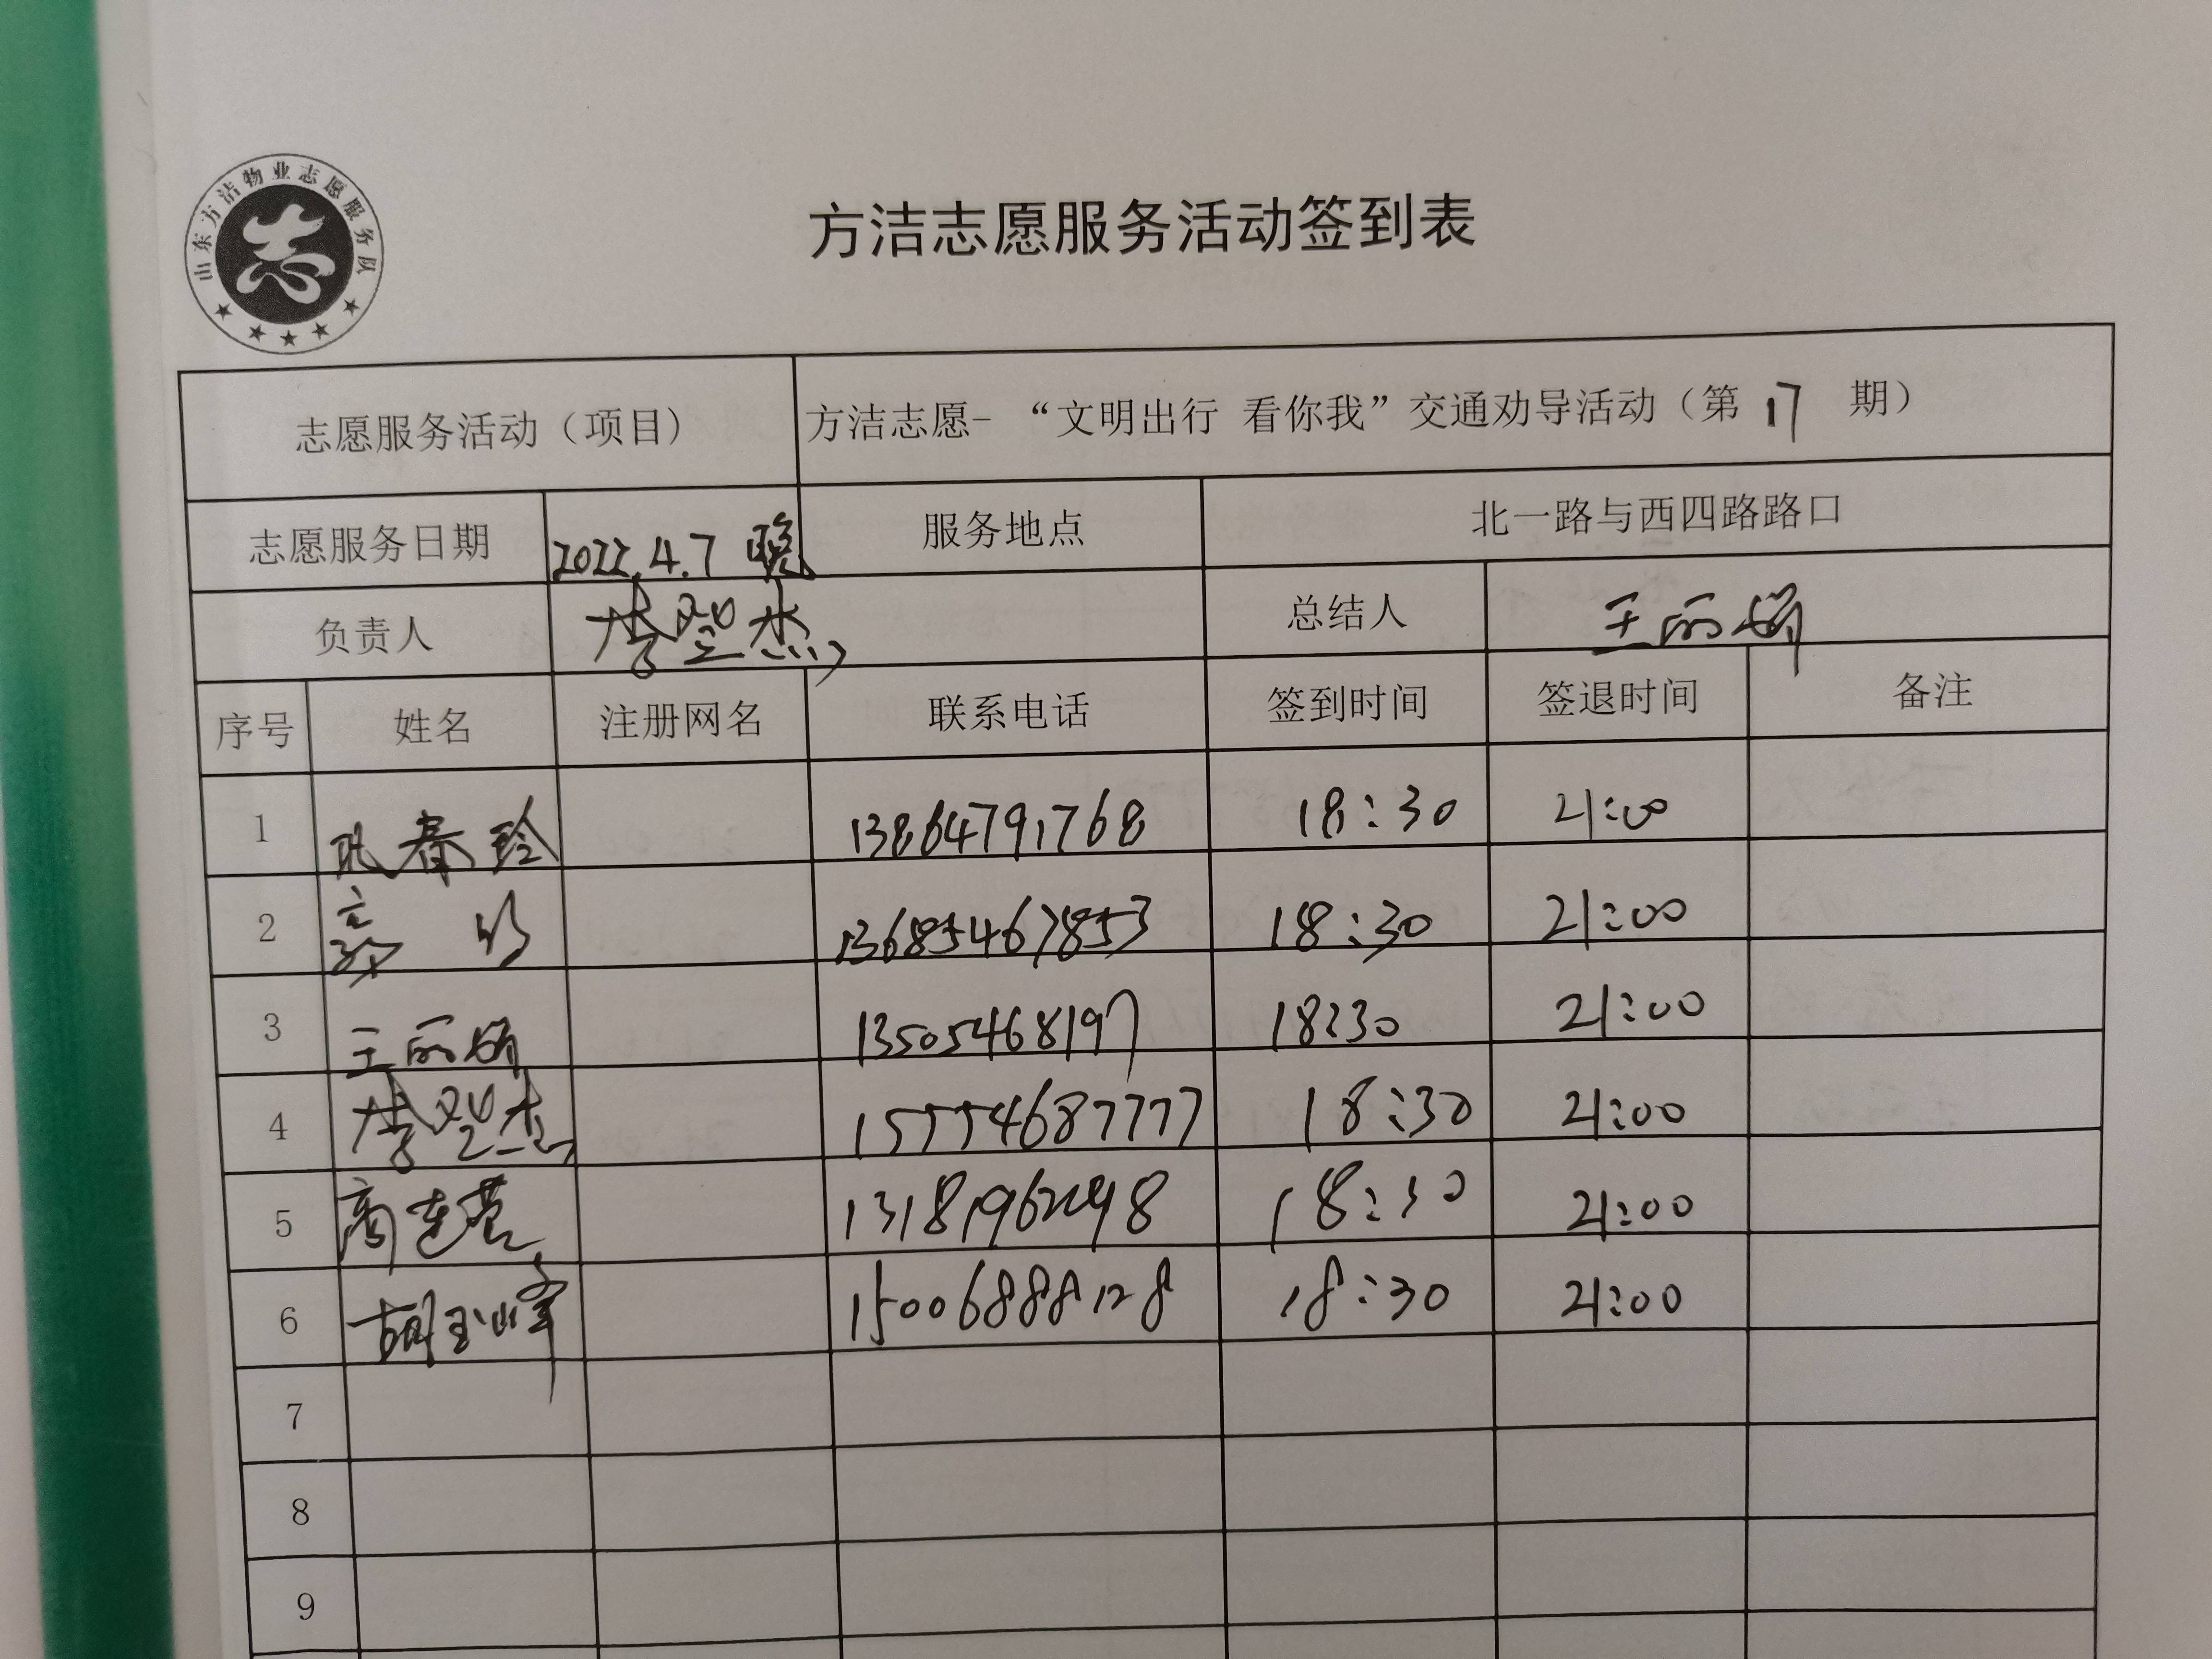 山东方洁物业志愿服务队
志
方洁志愿服务活动签到表
志愿服务活动（项目） 方洁志愿-“文明出行 看你我”交通劝导活动（第 17 期）
志愿服务日期 2022.4.7 晚 服务地点 北一路与西四路路口
负责人 李登杰 总结人 王丽娟
序号 姓名 注册网名 联系电话 签到时间 签退时间 备注
1 巩春玲 13864791768 18:30 21:00
2 13685467853 18:30 21:00
3 王丽娟 13505468197 18:30 21:00
4 李登杰 15554687777 18:30 21:00
5 高连营 18:30 21:00
6 胡玉峰 15006888128 18:30 21:00
7
8
9